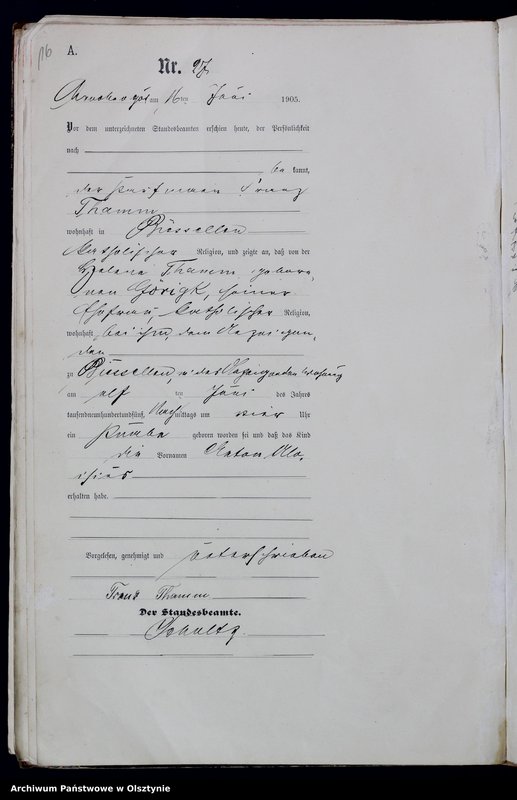 16
A.
Nr. 27.
am 16ten Juni 1905.
Vor dem unterzeichneten Standesbeamten erschien heute, der Persönlichkeit
nach
be kannt,
der Kaufmann Franz
Thamm
wohnhaft in Büssellen
katholischer Religion, und zeigte an, daß von der
Helene Thamm gebore,
nen Görigk, seiner
Ehefrau, katholischer Religion,
wohnhaft bei ihm, dem Anzeigen,
den
zu Büssellen, in des Wohnung
am elf ten Juni des Jahres
tausendneunhundertundfünf, Nachmittags um vier Uhr
ein Knabe geboren worden sei und daß das Kind
die Vornamen Anton Alo,
isius
erhalten habe.
Vorgelesen, genehmigt und unterschrieben
Franz Thamm
Der Standesbeamte.
Schultz.
Archiwum Państwowe w Olsztynie